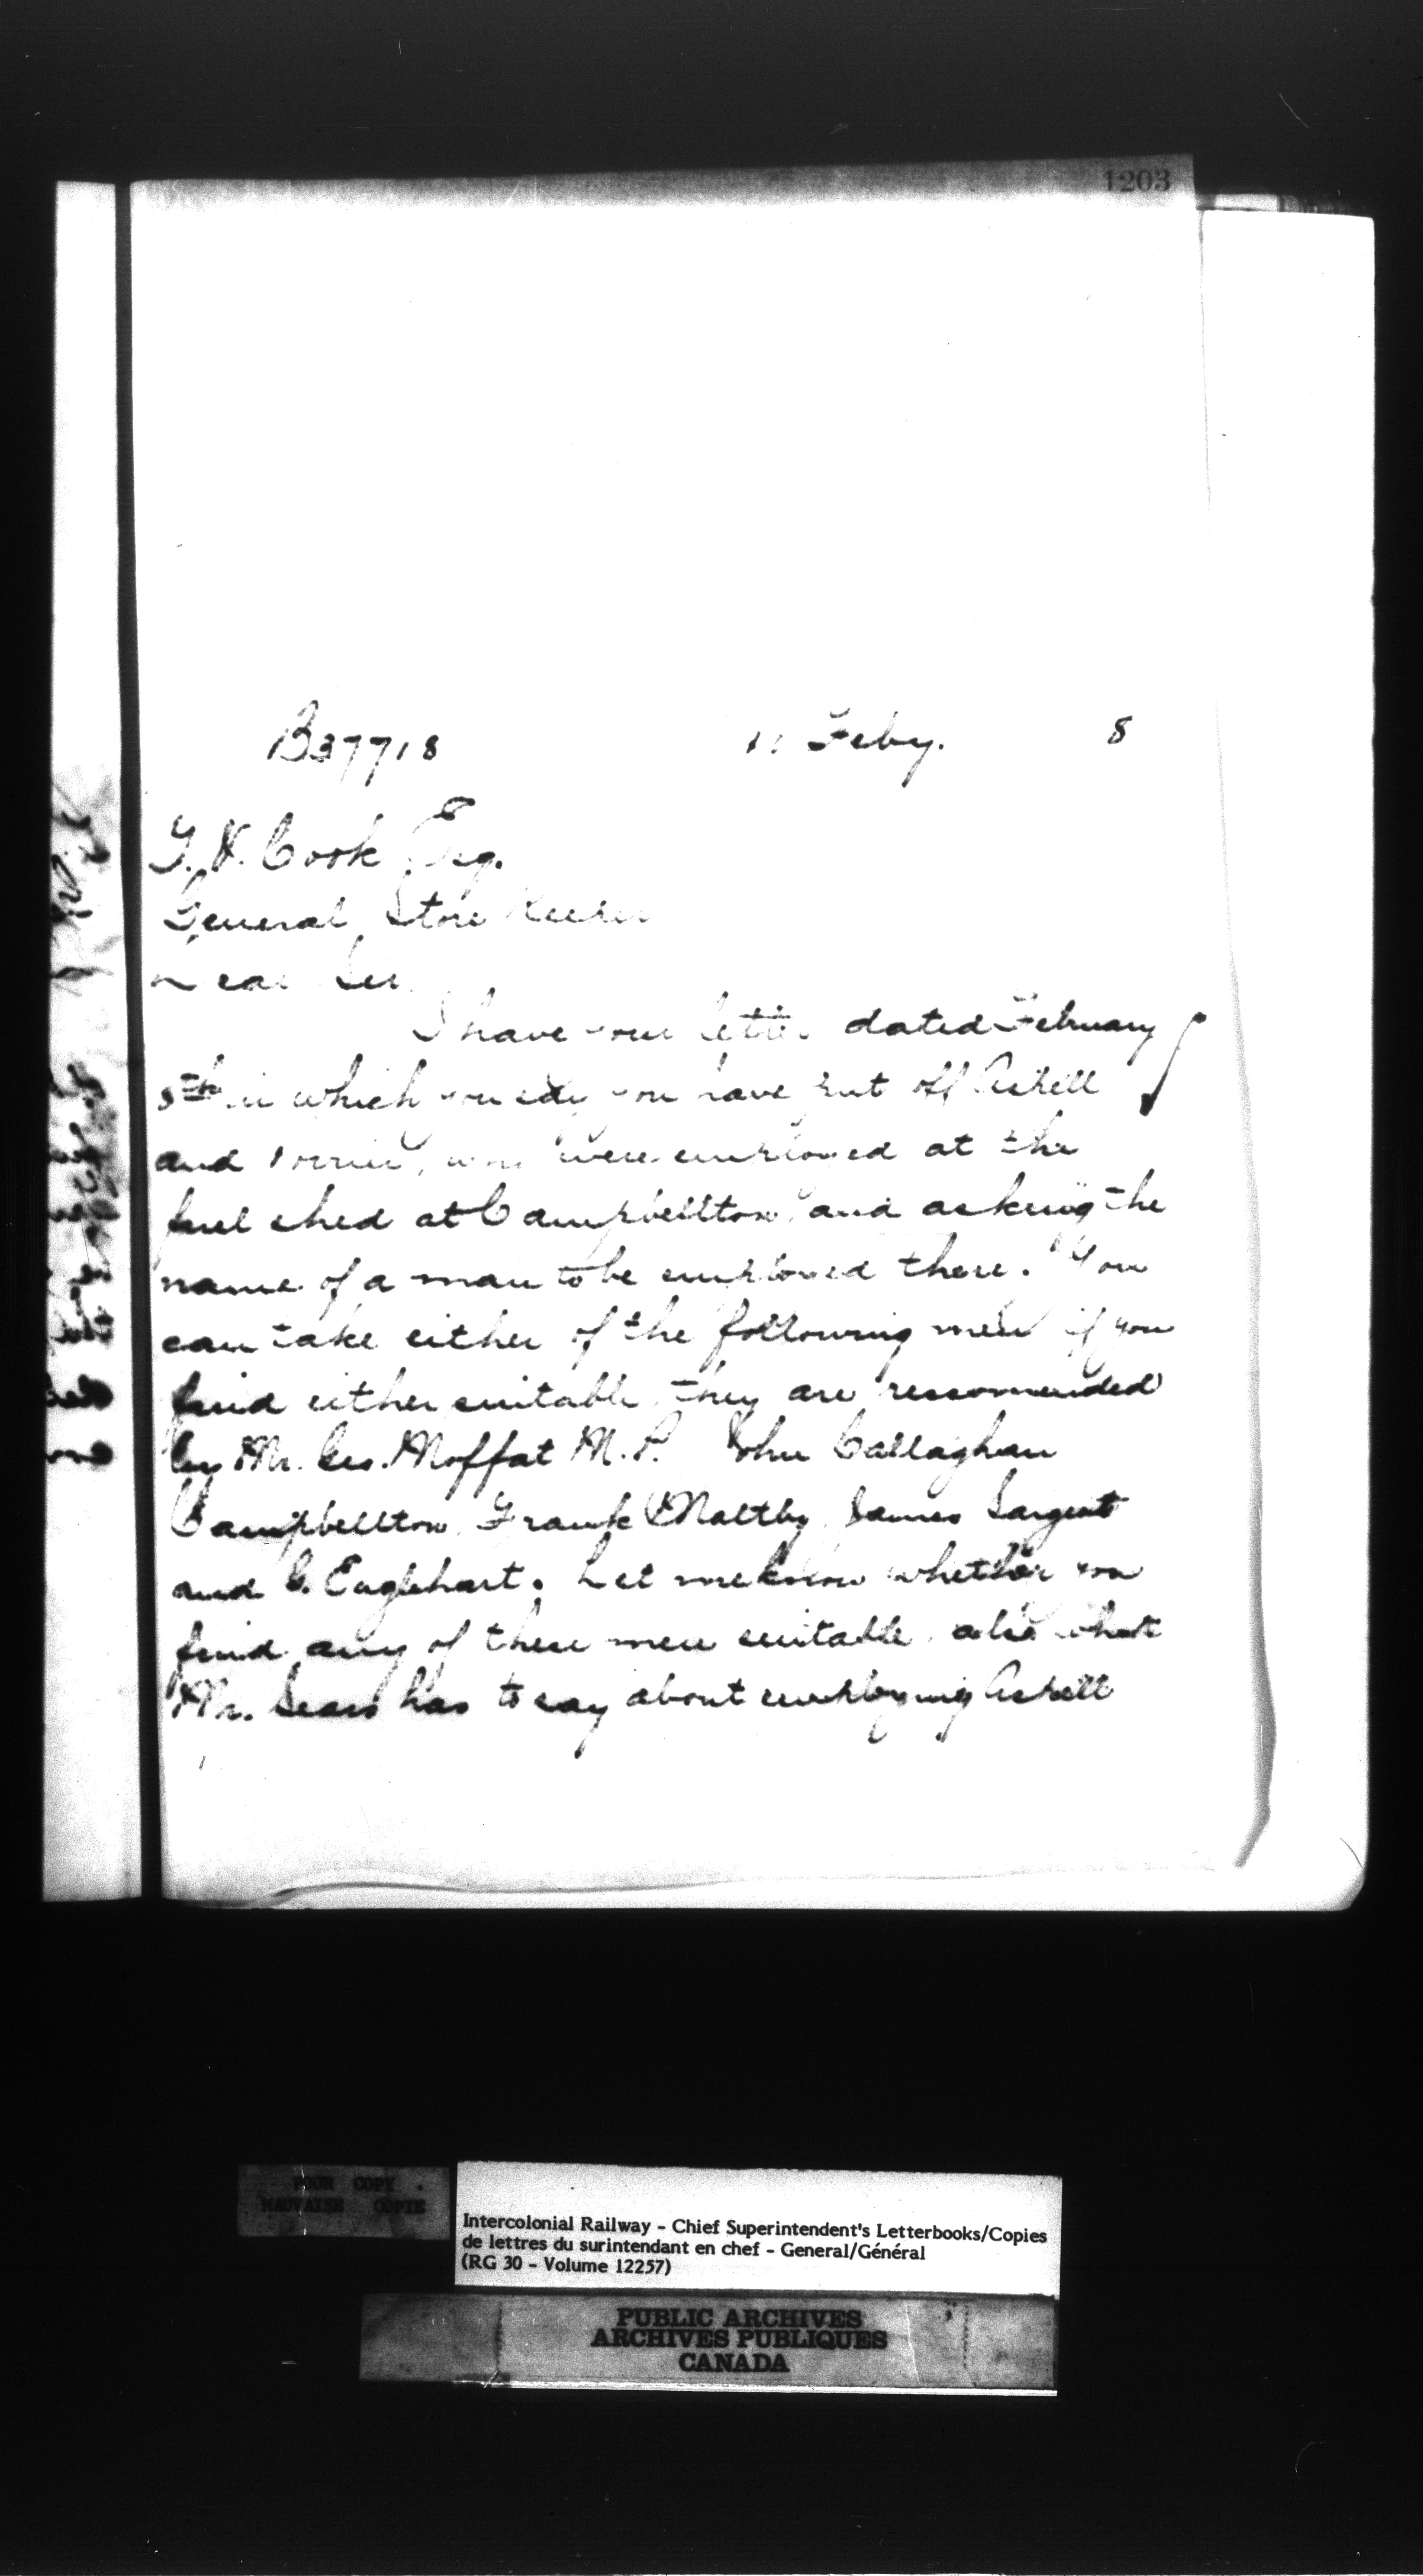 1203
B37718 11 Feby. 8
Cook Esq.
General Store Keeper
Dear Sir
I have your letter dated February
5th in which you say you have put off Askell
and who were employed at the
fuel shed at Campbellton, and asking the
name of a man to be employed there. You
can take either of the following men if you
find either suitable, they are recommended
by Mr. Geo. Moffat M.P. John Callaghan
Campbellton, Frank Maltby, James Sargent
and C. Englehart. Let me know whether you
find any of these men suitable, also what
Mr. Sears has to say about employing Askell
POOR COPY
MAUVAISE COPIE
Intercolonial Railway - Chief Superintendent's Letterbooks/Copies
de lettres du surintendant en chef - General/Général
(RG 30 - Volume 12257)
PUBLIC ARCHIVES
ARCHIVES PUBLIQUES
CANADA